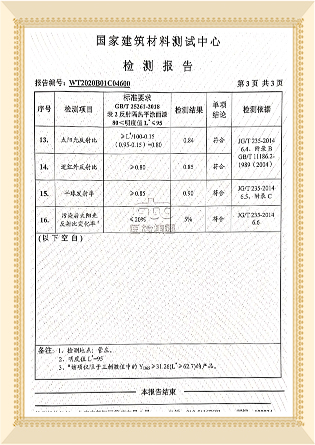 国家建筑材料测试中心
检测报告
报告编号：WT2020B01C04600 第3页 共3页
序号 检测项目 标准要求 GB/T 25261-2018 表2 反射隔热平涂面漆 80＜明度值L*≤95 检测结果 单项结论 检测依据
13. 太阳光反射比 ≥L*/100-0.15 (0.95-0.15)=0.80 0.84 符合 JG/T 235-2014 6.4、附录B GB/T 11186.2-1989（2004）
14. 近红外反射比 ≥0.80 0.85 符合
15. 半球发射率 ≥0.85 0.90 符合 JG/T 235-2014 6.5、附录C
16. 污染后太阳光反射比变化率 ≤20% 5% 符合 JG/T 235-2014 6.6
(以下空白)
备注：1、检测地点：管庄。
2、明度值L*=95
3、
本报告结束